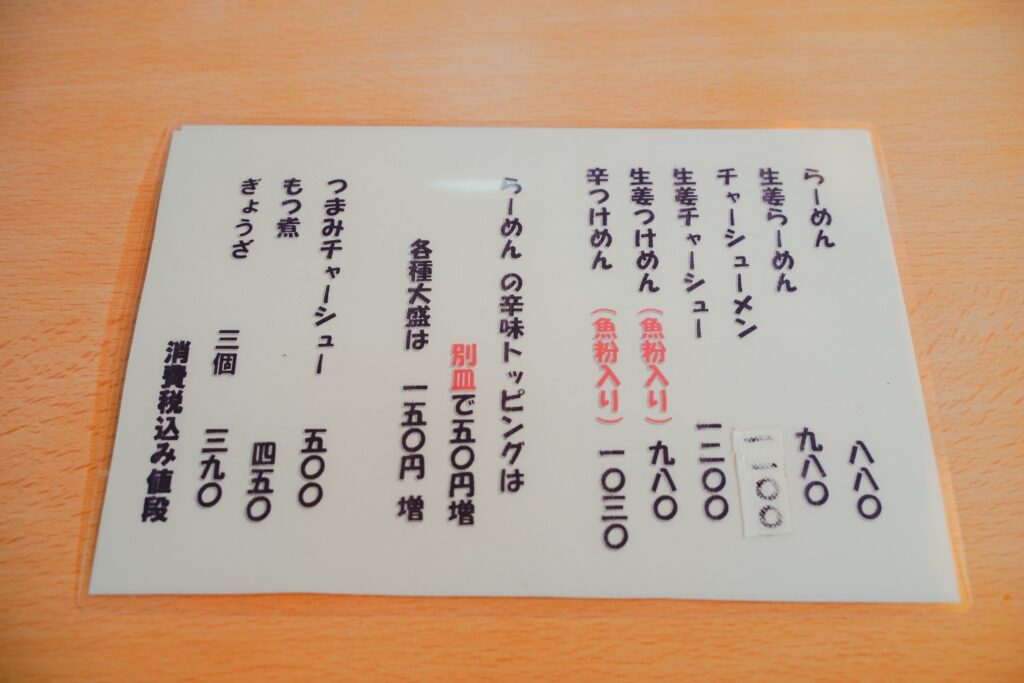 らーめん 八八〇
生姜らーめん 九八〇
チャーシューメン 一一〇〇
生姜チャーシュー 一二〇〇
生姜つけめん (魚粉入り) 九八〇
辛つけめん (魚粉入り) 一〇三〇
らーめん の辛味トッピングは
別皿で五〇円増
各種大盛は 一五〇円 増
つまみチャーシュー 五〇〇
もつ煮 四五〇
ぎょうざ 三個 三九〇
消費税込み値段